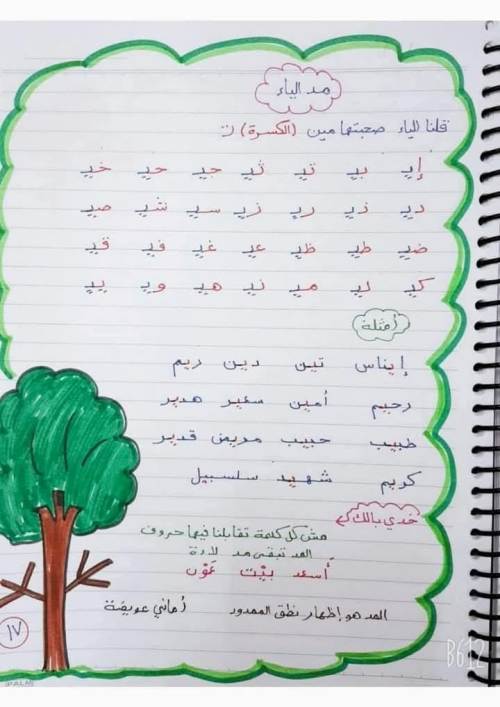 مد الياء
قلنا الياء صحبتها مين (الكسرة) ـِ
إيـ بيـ تيـ ثيـ جيـ حيـ خيـ
ديـ ذيـ ريـ زيـ سيـ شيـ صيـ
ضيـ طيـ ظيـ عيـ غيـ فيـ قيـ
كيـ ليـ ميـ نيـ هيـ ويـ ييـ
أمثلة
إيناس تين دين ريم
رحيم أمين سفير هدير
طبيب حبيب مريض قدير
كريم شهيد سلسبيل
خدي بالك
مش كل كلمة تقابلنا فيها حروف
المد تبقى مد لازم
أسعد بيْت عَوْن
المد هو إظهار نطق الممدود أماني عويضة
١٧
B612